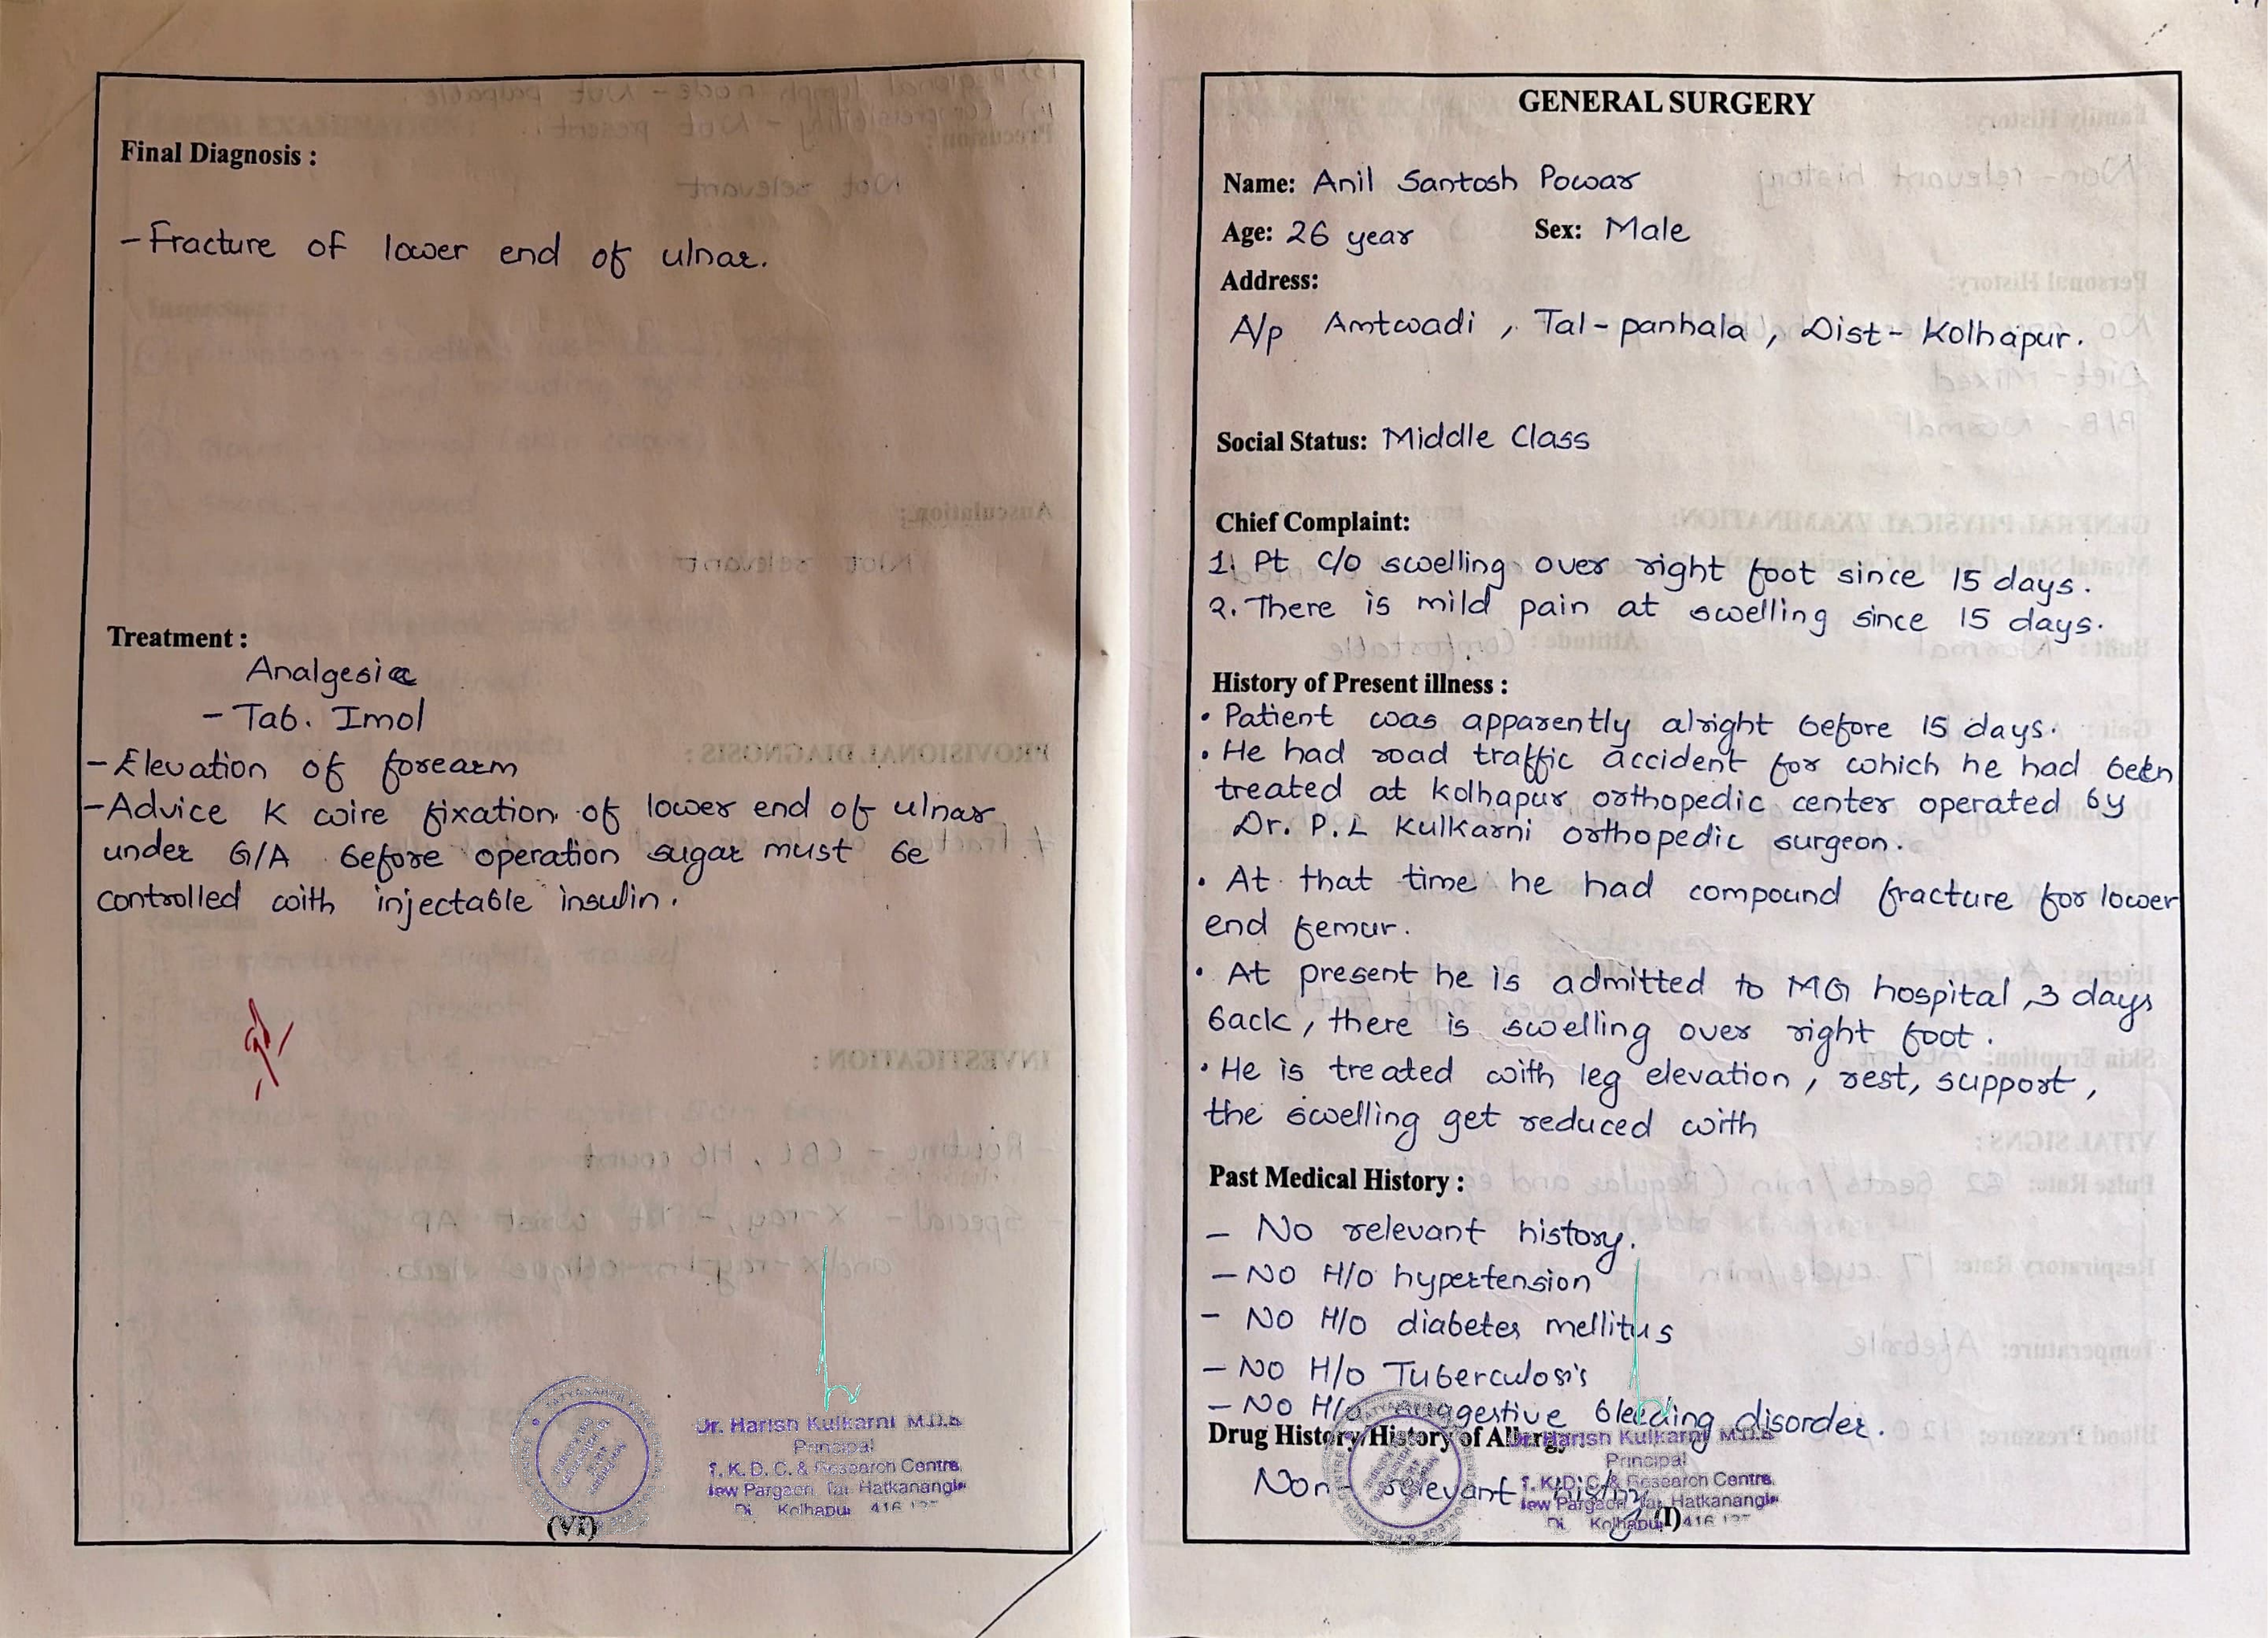 Final Diagnosis :
- Fracture of lower end of ulnar.
Treatment :
Analgesia
- Tab. Imol
- Elevation of forearm
- Advice K wire fixation of lower end of ulnar
under G/A before operation sugar must be
controlled with injectable insulin.
Dr. Harish Kulkarni M.D.S
Principal
T. K. D. C. & Research Centre,
New Pargaon, Tal. Hatkanangle
Di Kolhapur 416
(VI)
GENERAL SURGERY
Name: Anil Santosh Powar
Age: 26 year Sex: Male
Address:
A/p Amtwadi , Tal - panhala , Dist - Kolhapur.
Social Status: Middle Class
Chief Complaint:
1. Pt c/o swelling over right foot since 15 days.
2. There is mild pain at swelling since 15 days.
History of Present illness :
• Patient was apparently alright before 15 days.
• He had road traffic accident for which he had been
treated at kolhapur orthopedic center operated by
Dr. P. L Kulkarni orthopedic surgeon.
• At that time he had compound fracture for lower
end femur.
• At present he is admitted to MG hospital , 3 days
back , there is swelling over right foot .
• He is treated with leg elevation , rest, support ,
the swelling get reduced with
Past Medical History :
- No relevant history.
- No H/o hypertension
- No H/o diabetes mellitus
- No H/o Tuberculosis
- No H/o suggestive bleeding disorder.
Drug History/History of Allergy
Non - relevant history
Dr. Harish Kulkarni M.D.S
Principal
T. K. D. C. & Research Centre,
New Pargaon, Tal. Hatkanangle
Di Kolhapur 416
(I)